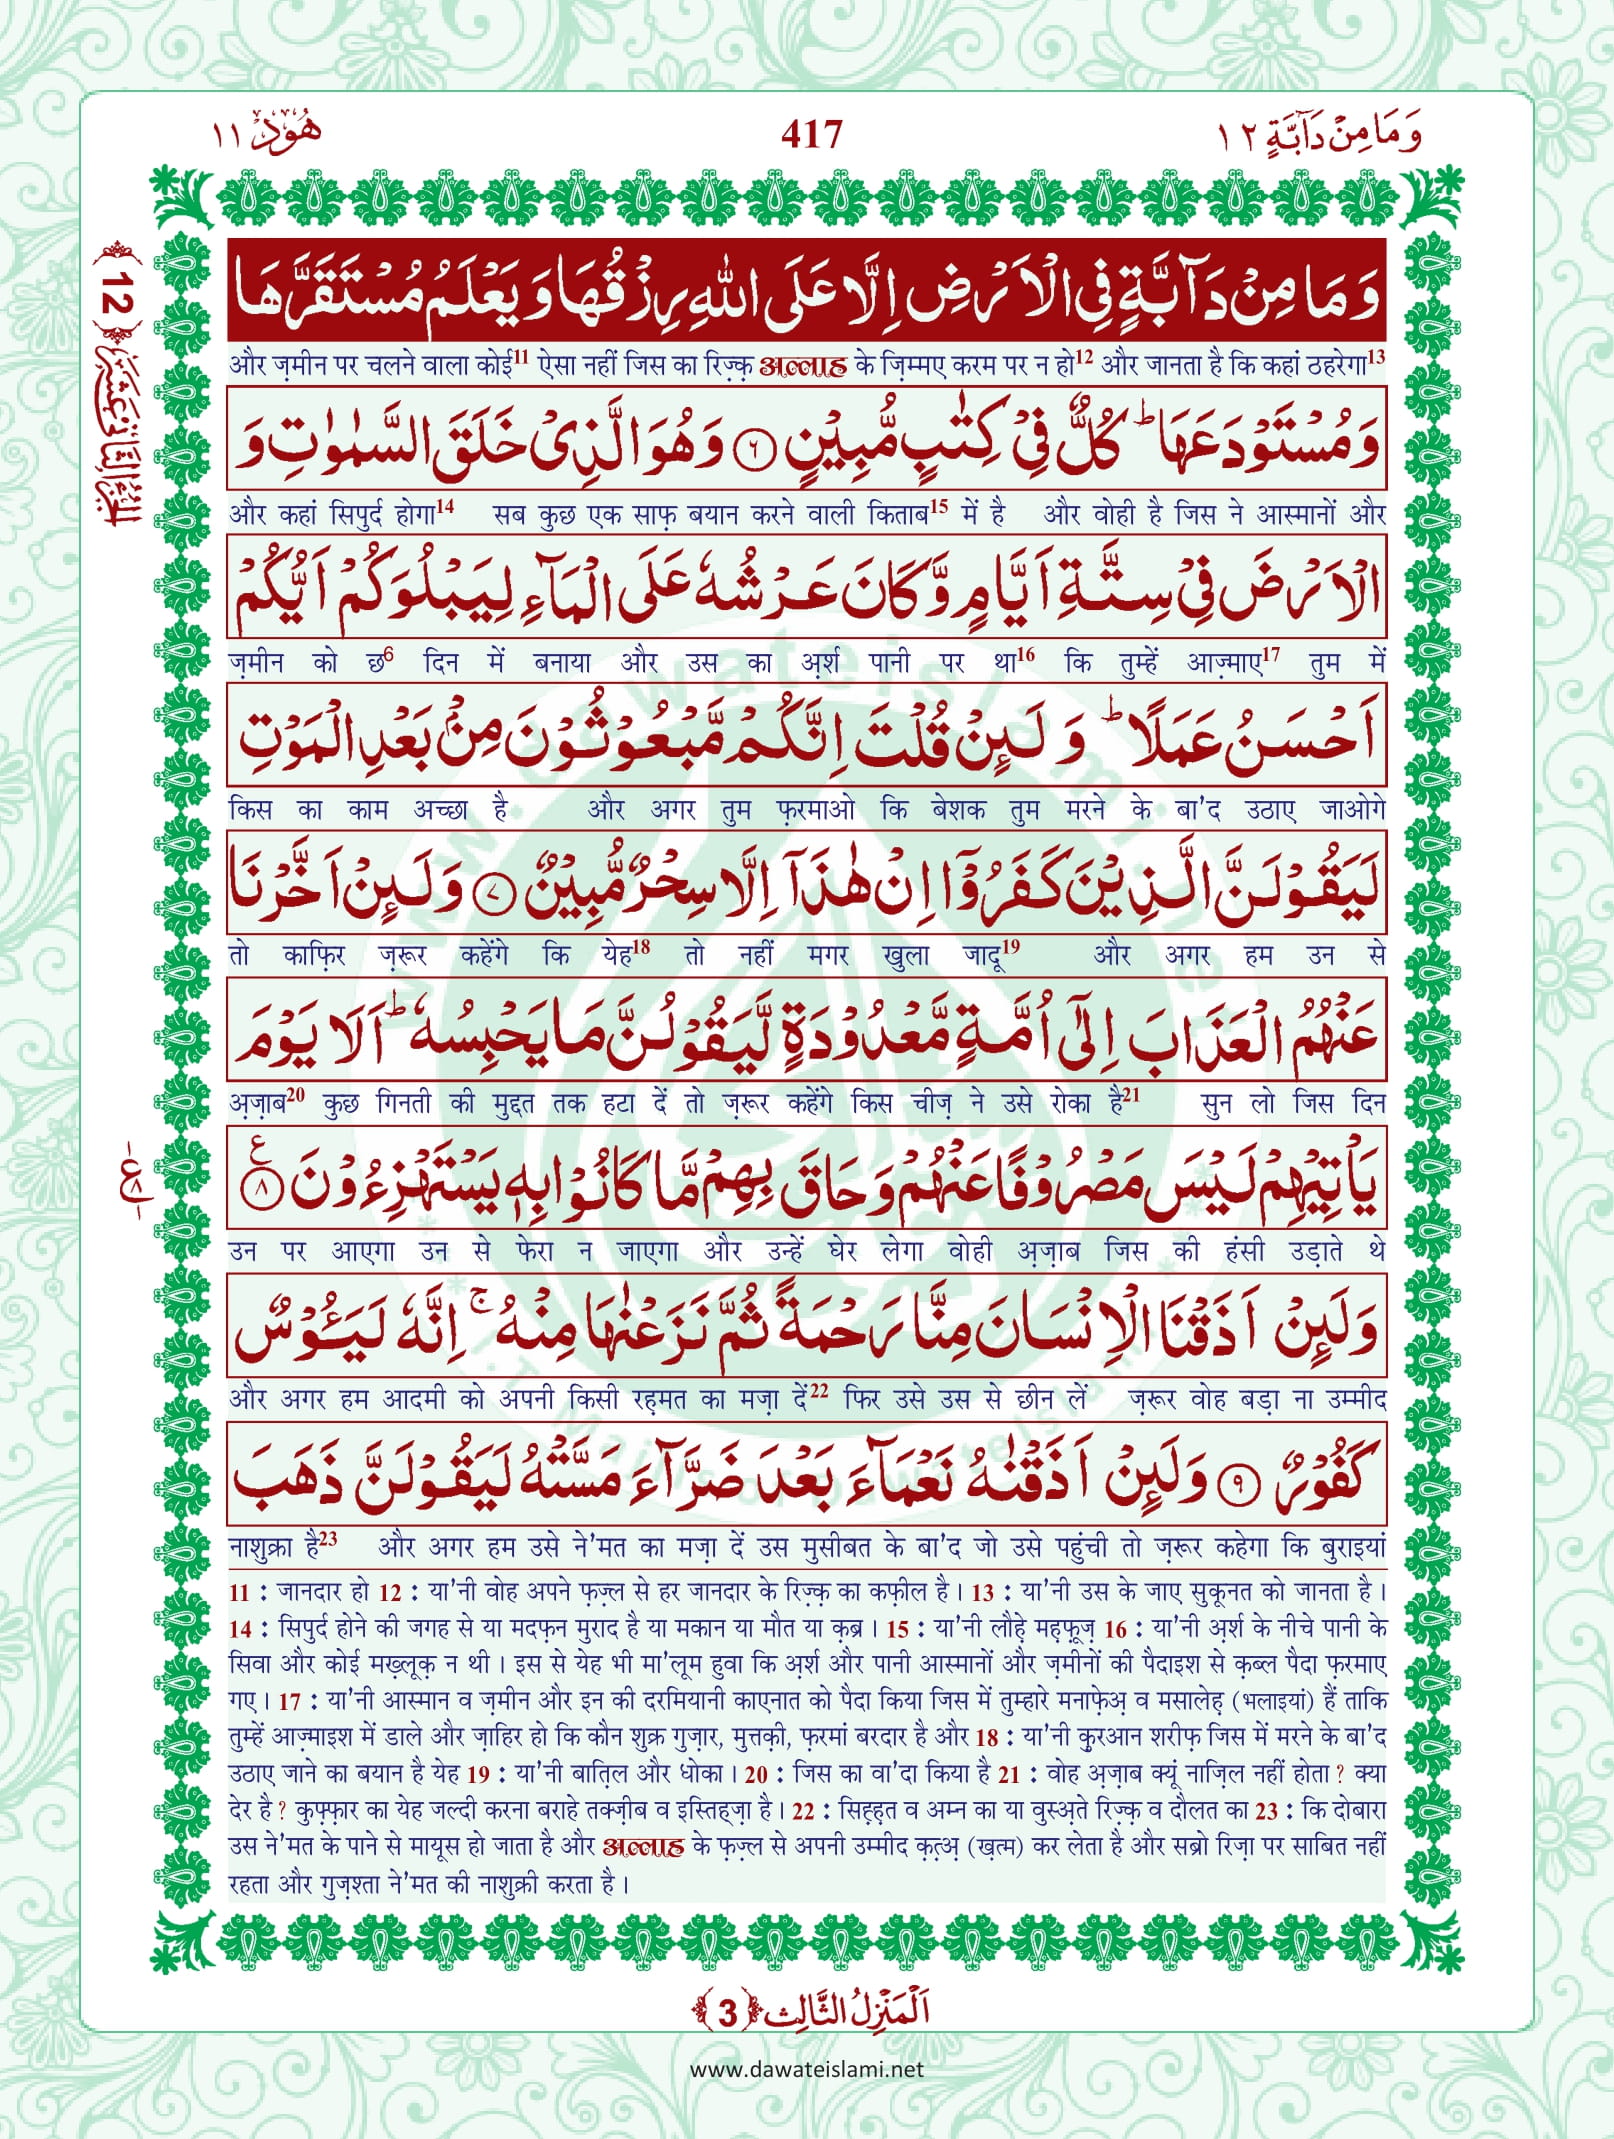 وَمَا مِنْ دَآبَّةٍ ١٢
417
هُوْد ١١
وَمَا مِنْ دَآبَّةٍ فِى الْاَرْضِ اِلَّا عَلَى اللّٰهِ رِزْقُهَا وَ يَعْلَمُ مُسْتَقَرَّهَا
और ज़मीन पर चलने वाला कोई11 ऐसा नहीं जिस का रिज़्क़ अल्लाह के ज़िम्मए करम पर न हो12 और जानता है कि कहां ठहरेगा13
وَ مُسْتَوْدَعَهَاؕ كُلٌّ فِیْ كِتٰبٍ مُّبِیْنٍ ﴿۶﴾ وَ هُوَ الَّذِیْ خَلَقَ السَّمٰوٰتِ وَ
और कहां सिपुर्द होगा14 सब कुछ एक साफ़ बयान करने वाली किताब15 में है और वोही है जिस ने आस्मानों और
الْاَرْضَ فِیْ سِتَّةِ اَیَّامٍ وَّ كَانَ عَرْشُهٗ عَلَى الْمَآءِ لِیَبْلُوَكُمْ اَیُّكُمْ
ज़मीन को छ6 दिन में बनाया और उस का अ़र्श पानी पर था16 कि तुम्हें आज़्माए17 तुम में
اَحْسَنُ عَمَلًاؕ وَ لَىٕنْ قُلْتَ اِنَّكُمْ مَّبْعُوْثُوْنَ مِنْۢ بَعْدِ الْمَوْتِ
किस का काम अच्छा है और अगर तुम फ़रमाओ कि बेशक तुम मरने के बा'द उठाए जाओगे
لَیَقُوْلَنَّ الَّذِیْنَ كَفَرُوْۤا اِنْ هٰذَاۤ اِلَّا سِحْرٌ مُّبِیْنٌ ﴿۷﴾ وَ لَىٕنْ اَخَّرْنَا
तो काफ़िर ज़रूर कहेंगे कि येह18 तो नहीं मगर खुला जादू19 और अगर हम उन से
عَنْهُمُ الْعَذَابَ اِلٰۤى اُمَّةٍ مَّعْدُوْدَةٍ لَّیَقُوْلُنَّ مَا یَحْبِسُهٗؕ اَلَا یَوْمَ
अ़ज़ाब20 कुछ गिनती की मुद्दत तक हटा दें तो ज़रूर कहेंगे किस चीज़ ने उसे रोका है21 सुन लो जिस दिन
یَاْتِیْهِمْ لَیْسَ مَصْرُوْفًا عَنْهُمْ وَ حَاقَ بِهِمْ مَّا كَانُوْا بِهٖ یَسْتَهْزِءُوْنَ ﴿۸﴾ ع
उन पर आएगा उन से फेरा न जाएगा और उन्हें घेर लेगा वोही अ़ज़ाब जिस की हंसी उड़ाते थे
وَ لَىٕنْ اَذَقْنَا الْاِنْسَانَ مِنَّا رَحْمَةً ثُمَّ نَزَعْنٰهَا مِنْهُۚ اِنَّهٗ لَیَـُٔوْسٌ
और अगर हम आदमी को अपनी किसी रह़मत का मज़ा दें22 फिर उसे उस से छीन लें ज़रूर वोह बड़ा ना उम्मीद
كَفُوْرٌ ﴿۹﴾ وَ لَىٕنْ اَذَقْنٰهُ نَعْمَآءَ بَعْدَ ضَرَّآءَ مَسَّتْهُ لَیَقُوْلَنَّ ذَهَبَ
नाशुक्रा है23 और अगर हम उसे ने'मत का मज़ा दें उस मुसीबत के बा'द जो उसे पहुंची तो ज़रूर कहेगा कि बुराइयां
11 : जानदार हो 12 : या'नी वोह अपने फ़ज़्ल से हर जानदार के रिज़्क़ का कफ़ील है। 13 : या'नी उस के जाए सुकूनत को जानता है।
14 : सिपुर्द होने की जगह से या मदफ़न मुराद है या मकान या मौत या क़ब्र। 15 : या'नी लौह़े मह़फ़ूज़ 16 : या'नी अ़र्श के नीचे पानी के
सिवा और कोई मख़्लूक़ न थी। इस से येह भी मा'लूम हुवा कि अ़र्श और पानी आस्मानों और ज़मीनों की पैदाइश से क़ब्ल पैदा फ़रमाए
गए। 17 : या'नी आस्मान व ज़मीन और इन की दरमियानी काएनात को पैदा किया जिस में तुम्हारे मनाफ़ेअ़ व मसालेह़ (भलाइयां) हैं ताकि
तुम्हें आज़्माइश में डाले और ज़ाहिर हो कि कौन शुक्र गुज़ार, मुत्तक़ी, फ़रमां बरदार है और 18 : या'नी क़ुरआन शरीफ़ जिस में मरने के बा'द
उठाए जाने का बयान है येह 19 : या'नी बात़िल और धोका। 20 : जिस का वा'दा किया है 21 : वोह अ़ज़ाब क्यूं नाज़िल नहीं होता? क्या
देर है? कुफ़्फ़ार का येह जल्दी करना बराहे तक्ज़ीब व इस्तिह्ज़ा है। 22 : सिह़्ह़त व अम्न का या वुस्अ़ते रिज़्क़ व दौलत का 23 : कि दोबारा
उस ने'मत के पाने से मायूस हो जाता है और अल्लाह के फ़ज़्ल से अपनी उम्मीद क़त़्अ़ (ख़त्म) कर लेता है और सब्रो रिज़ा पर साबित नहीं
रहता और गुज़श्ता ने'मत की नाशुक्री करता है।
12
اَلْجُزْءُ الثَّانِیْ عَشَرَ
اَلْمَنْزِلُ الثَّالِث ﴿3﴾
www.dawateislami.net